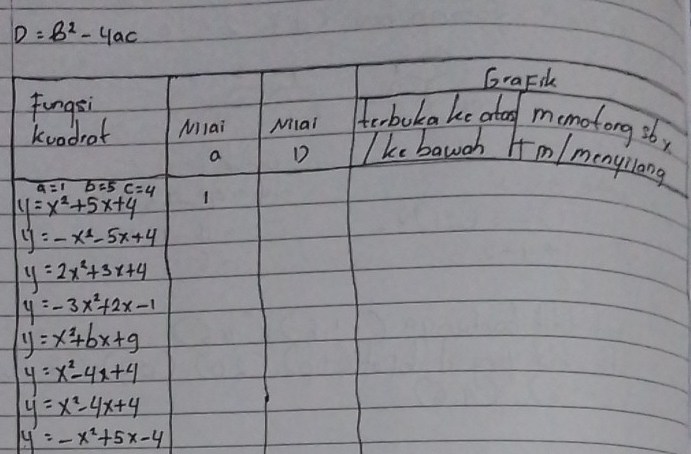 D = B² - 4ac
Grafik
Fungsi kuadrat
Nilai a
Nilai D
terbuka ke atas / ke bawah
memotong sb x
/ menyilang
a=1 b=5 c=4
y = x² + 5x + 4
1
y = -x² - 5x + 4
y = 2x² + 3x + 4
y = -3x² + 2x - 1
y = x² + 6x + 9
y = x² - 4x + 4
y = x² - 4x + 4
y = -x² + 5x - 4